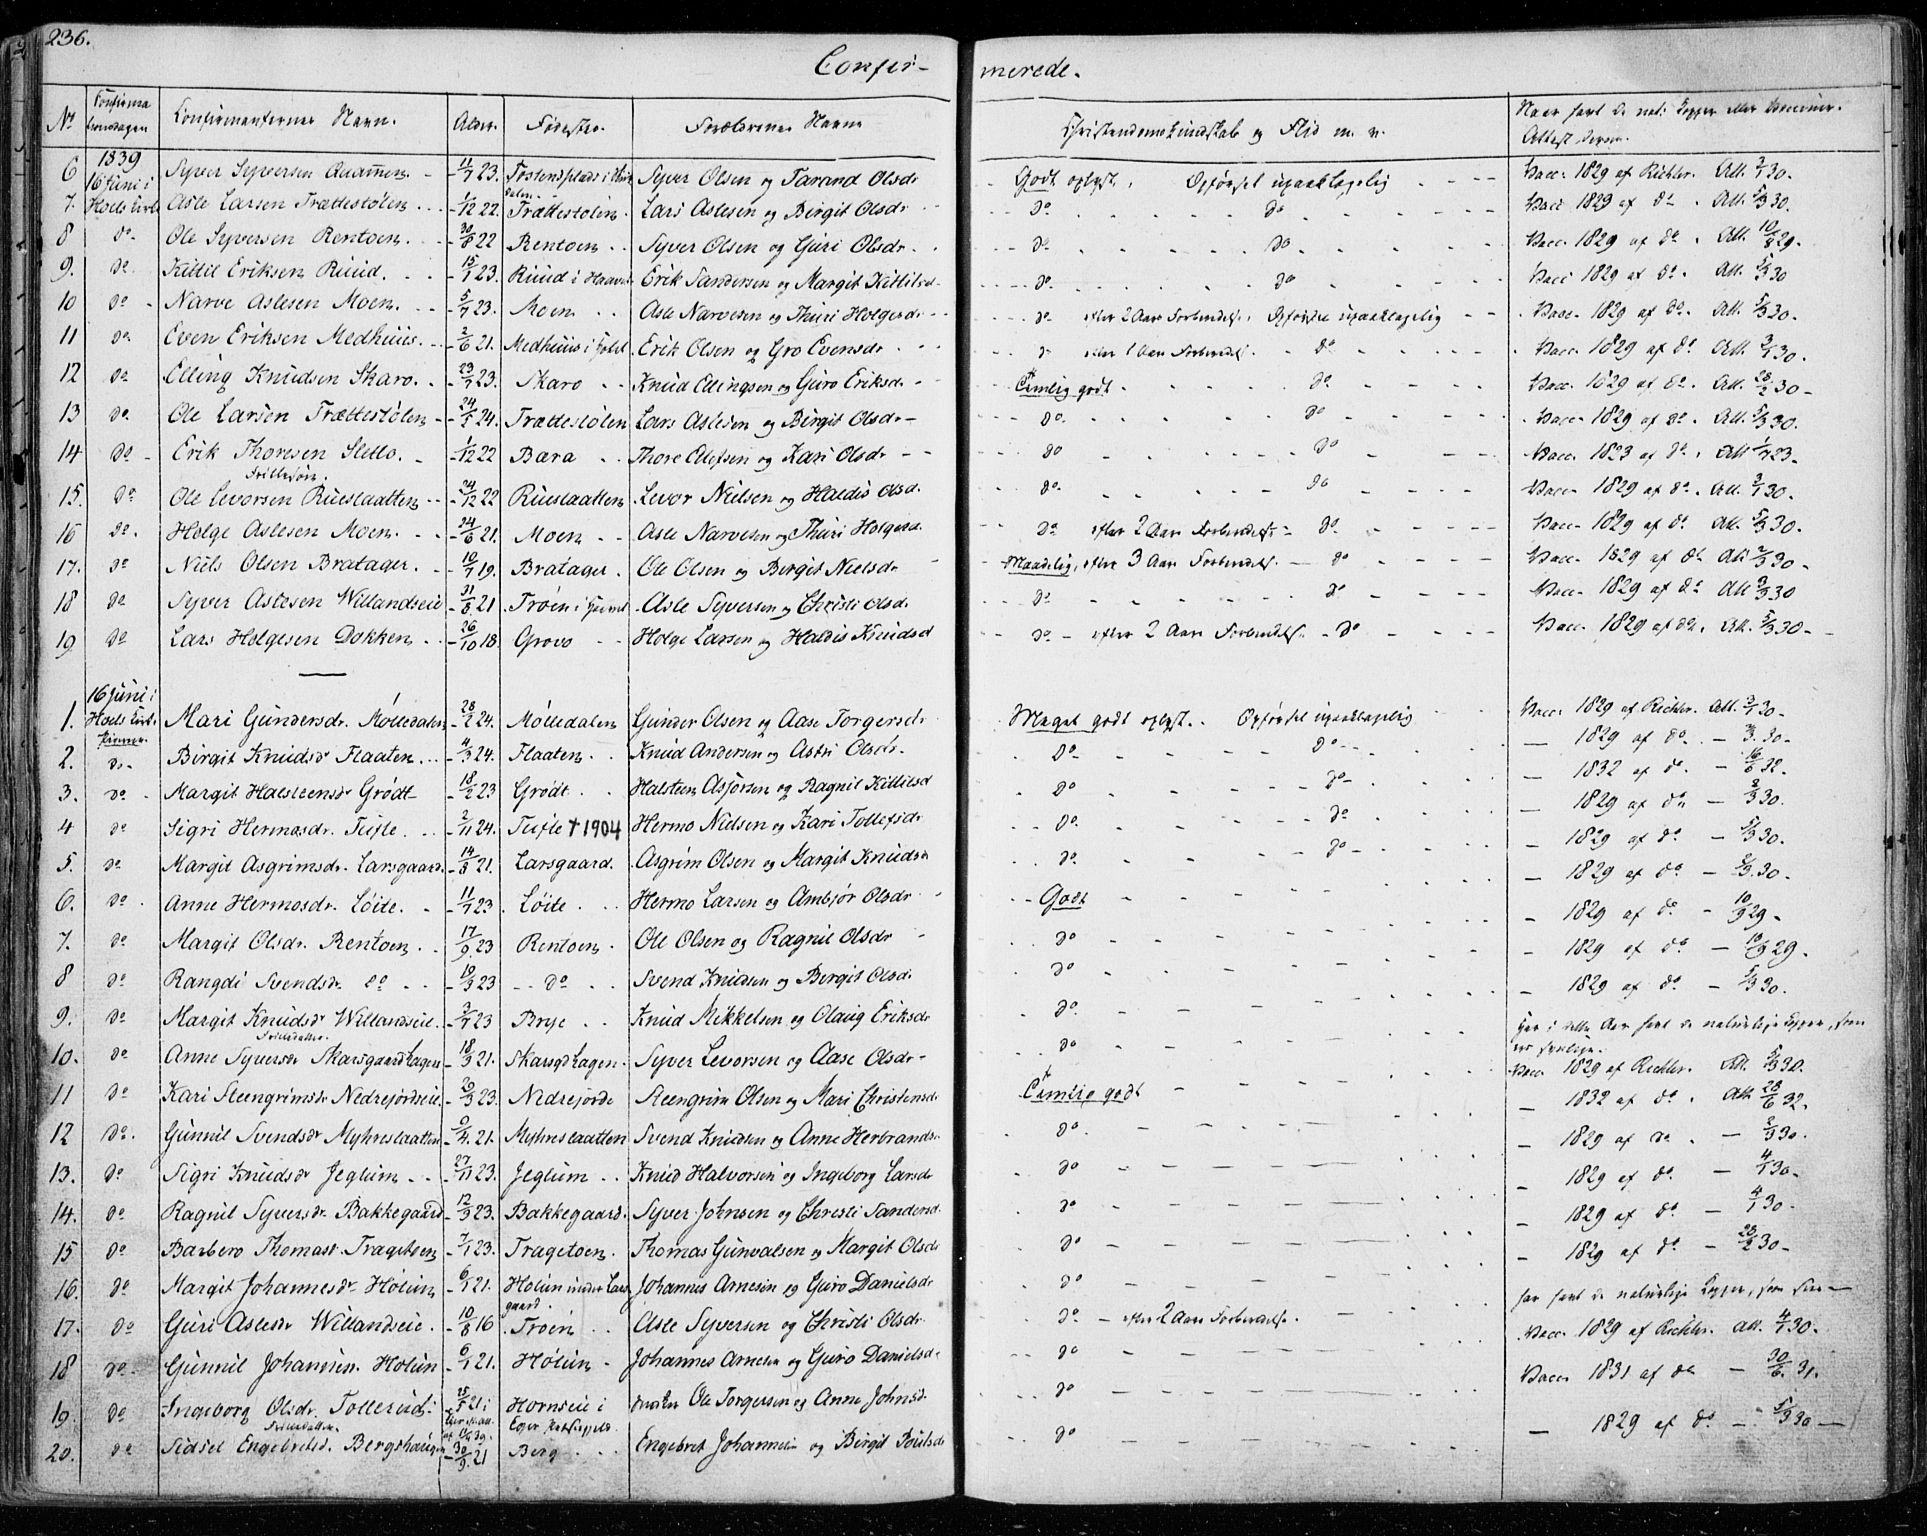 236.
Confir- merede.
No Confirmationsdagen Confirmanternes Navn. Alder. Fødested. Forældrenes Navne Christendomskundskab og Flid m. v. Naar havt de nat: Kopper eller Vaccinner. Attest derom.
1839
6 16 Juni i Syver Syversen Quammen - 11/7 23. Syver Olsen og Tarand Olsdr Godt oplyst. Opførsel upaaklagelig Vacc. 1829 af Richter. Att. 3/1 30.
7. Hoels Kirke Asle Larsen Trættestølen 1/12 22. Trættestølen. Lars Aslesen og Birgit Olsdr do do Vacc 1829 af do. Att. 5/3 30.
8 do Ole Syversen Rentoen. 30/8 22 Rentoen Syver Olsen og Guri Olsdr. do do Vacc. 1829 af do. Att. 10/8 29.
9. do Kittil Eriksen Ruud. 15/1 23. Ruud i Erik Sandersen og Margit Kittilsd do do Vacc 1829 af do. Att. 5/3 30
10 do Narve Aslesen Moen. 5/7 23. Moen Asle Narvesen og Thuri Holgesdr do efter 2 Aars Forberedelse. Opførsel upaaklagelig Vacc. 1829 af do. Att. 5/3 30.
11 do Even Eriksen Medhuus. 2/6 21. Medhuus i Erik Olsen og Gro Evensdr do efter 1 Aars Forberedelse. do Vacc. 1829 af do Att. 3/1 30.
12 do Elling Knudsen Skaro. 23/7 23. Skaro Knud Ellingsen og Guro Eriksd. Temlig godt. do Vacc. 1829 af do. Att. 28/2 30-
13 do. Ole Larsen Trættestølen 24/5 24. Trættestølen Lars Aslesen og Birgit Olsdr do. do Vacc. 1829 af do. Att. 5/3 30.
14 do Erik Thoresen Sletto. 1/12 22 Bæra Thore Ellefsen og Kari Olsdr do do Vacc. 1823 af do. Att 1/7 23.
Frillesøn.
15. do Ole Levorsen Rueslaatten 24/12 22 Rueslaatten Levor Nielsen og Haldis Olsd. do. do Vacc. 1829 af do. Att. 3/1 30.
16 do. Holge Aslesen Moen. 24/6 21. Moen Asle Narvesen og Thuri Holgesd. do efter 2 Aars Forberedelse do. Vacc. 1829 af do Att. 5/3 30.
17. do Niels Olsen Bratager. 10/7 19. Bratager. Ole Olsen og Birgit Nielsdr Maadelig, efter 3 Aars Forberedelse. do Vacc. 1829 af do Att 3/3 30.
18 do Syver Aslesen Willandseie 31/8 21 Troen i Asle Syversen og Christi Olsdr do do Vacc. 1829 af do Att 3/3 30
19 do Lars Holgesen Dokken 26/10 18. Grovo Holge Larsen og Haldis Knudsd do - efter 2 Aars Forberedelse. do Vacc. 1829 af do. Att. 5/3 30.
16 Juni i
1. Hoels Kirke Mari Gundersdr. Mølledalen 28/2 24. Mølledalen Gunder Olsen og Aase Torgersdr Meget godt oplyst. Opførsel upaaklagelig Vacc. 1829 af Richter. Att. 3/1 30.
2. do Birgit Knudsdr Flaaten. 4/3 24. Flaaten. Knud Andersen og Astri Olsdr. do do 1829 af do. 3/3 30.
3. do Margit Halsteensdr Grødt 18/2 23 Grødt Halsteen Asjorsen og Ragnil Kittilsd do do 1832 af do. 16/6 32.
4 do Sigri Hermosdr. Tufte. 2/11 24. Tufte † 1904 Hermo Nielsen og Kari Tollefsdr do. do 1829 af do 3/3 30.
5. do Margit Asgrimsdr. Larsgaard. 14/8 21. Larsgaard. Asgrim Olsen og Margit Knudsdr do. do 1829 af do 5/3 30.
6. do Anne Hermosdr. Løite. 11/7 23. Løite. Hermo Larsen og Ambjør Olsdr Godt 1829 af do 5/3 30.
7. do Margit Olsdr. Rentoen. 17/9 23 Rentoen Ole Olsen og Ragnil Olsdr do 1829 af do 10/9 29.
8 do Rangdi Svendsdr do 19/3 23 do Svend Knudsen og Birgit Olsdr do 1829 af do 10/9 29.
9. do Margit Knudsdr Willandseie. 3/7 23 Brye Knud Mikkelsen og Olaug Eriksdr do 1829 af do 5/3 30.
Frilledatter.
10. do Anne Syversdr Skarsgaardhagen 18/3 21. Skarsgdhagen. Syver Levorsen og Aase Olsdr do Har i dette Aar havt de naturlige Kopper, som ere synlige.
11 do Kari Steengrimsdr Nedrejordeie. 20/3 23. Nedrejorde Steengrim Olsen og Mari Christensdr Temlig godt Vacc. 1829 af Richter. Att. 5/3 30.
12 do. Gunnil Svendsdr Myhreslaatten 2/4 21. Myhreslaatten Svend Knudsen og Anne Herbrandsd. do. 1832 af do. Att. 28/6 32.
13. do Sigri Knudsdr Jeglum 27/11 23. Jeglum Knud Halvorsen og Ingeborg Larsdr do 1829 af do. 3/3 30.
14. do Ragnil Syversdr. Bakkegaard 12/3 23. Bakkegaard. Syver Johnsen og Christi Sandersd. do 1829 af do. 4/1 30.
15 do Barbero Thomasd. Tragetoen 7/1 23. Tragetoen. Thomas Gunvalsen og Margit Olsdr do 1829 af do 4/1 30.
16. do Margit Johannesdr Holun 6/1 21. Holun under Larsgaard. Johannes Arnesen og Guro Danielsdr do 1829 af do 28/2 30.
17. do Guri Aslesdr Willandseie. 10/8 16 Troen Asle Syversen og Christi Olsdr. do efter 2 Aars Forberedelse. Har havt de naturlige Kopper, som sees
18 do Gunnil Johannesdr. Holun 6/1 21. Holun Johannes Arnesen og Guro Danielsdr do Vacc. 1829 af Richter. Att. 4/1 30.
19. do Ingeborg Olsdr. Tollerud. 21 Hornseie i Eger Ole Torgersen og Anne Johnsd. do Vacc. 1831 af do 30/6 31.
Frilledatter.
20. do Sidsel Engebretsd. Bergshaugen 30/9 21 Berg Engebret Johannesen og Birgit Poulsdr do 1829 af do 5/3 30